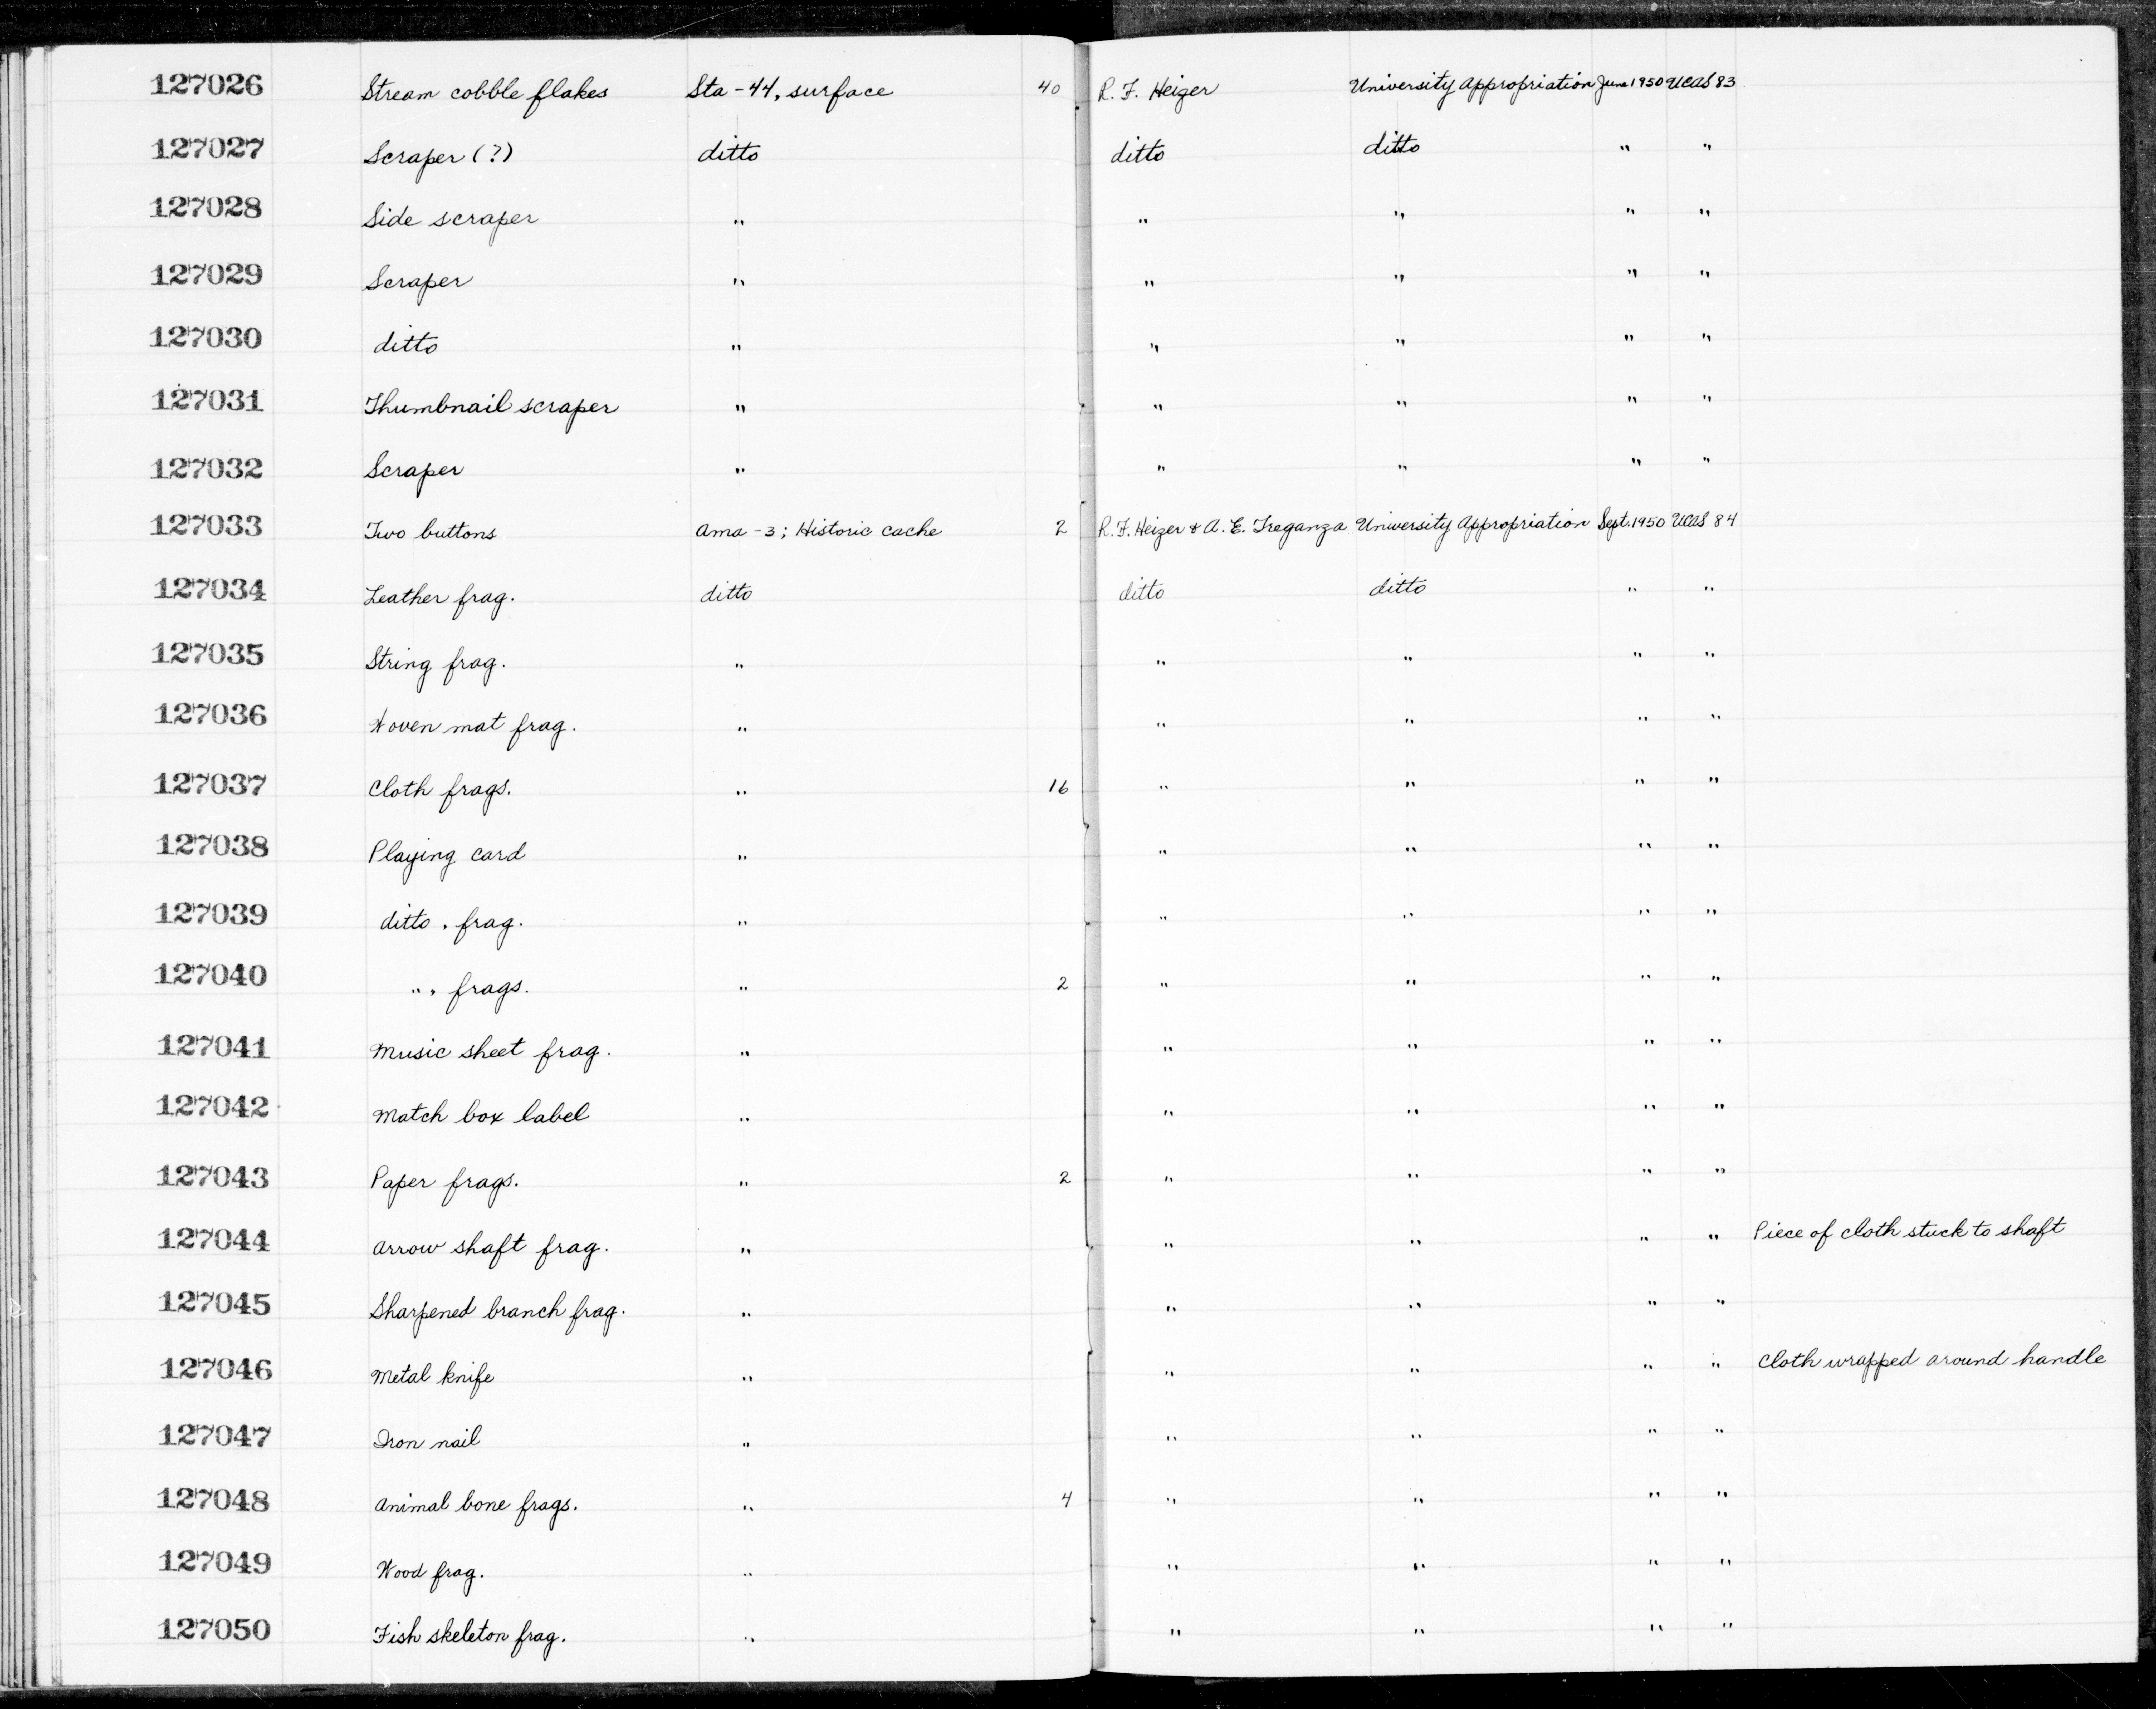 127026 Stream cobble flakes Sta-44, surface 40 R. F. Heizer University Appropriation June 1950 UCAS 83
127027 Scraper (?) ditto ditto ditto " "
127028 Side scraper " " " " "
127029 Scraper " " " " "
127030 ditto " " " " "
127031 Thumbnail scraper " " " " "
127032 Scraper " " " " "
127033 Two buttons Ama-3; Historic cache 2 R. F. Heizer & A. E. Treganza University Appropriation Sept. 1950 UCAS 84
127034 Leather frag. ditto ditto ditto " "
127035 String frag. " " " " "
127036 Woven mat frag. " " " " "
127037 Cloth frags. " 16 " " " "
127038 Playing card " " " " "
127039 ditto, frag. " " " " "
127040 ", frags. " 2 " " " "
127041 Music sheet frag. " " " " "
127042 Match box label " " " " "
127043 Paper frags. " 2 " " " "
127044 Arrow shaft frag. " " " " " Piece of cloth stuck to shaft
127045 Sharpened branch frag. " " " " "
127046 Metal knife " " " " " Cloth wrapped around handle
127047 Iron nail " " " " "
127048 Animal bone frags. " 4 " " " "
127049 Wood frag. " " " " "
127050 Fish skeleton frag. " " " " "